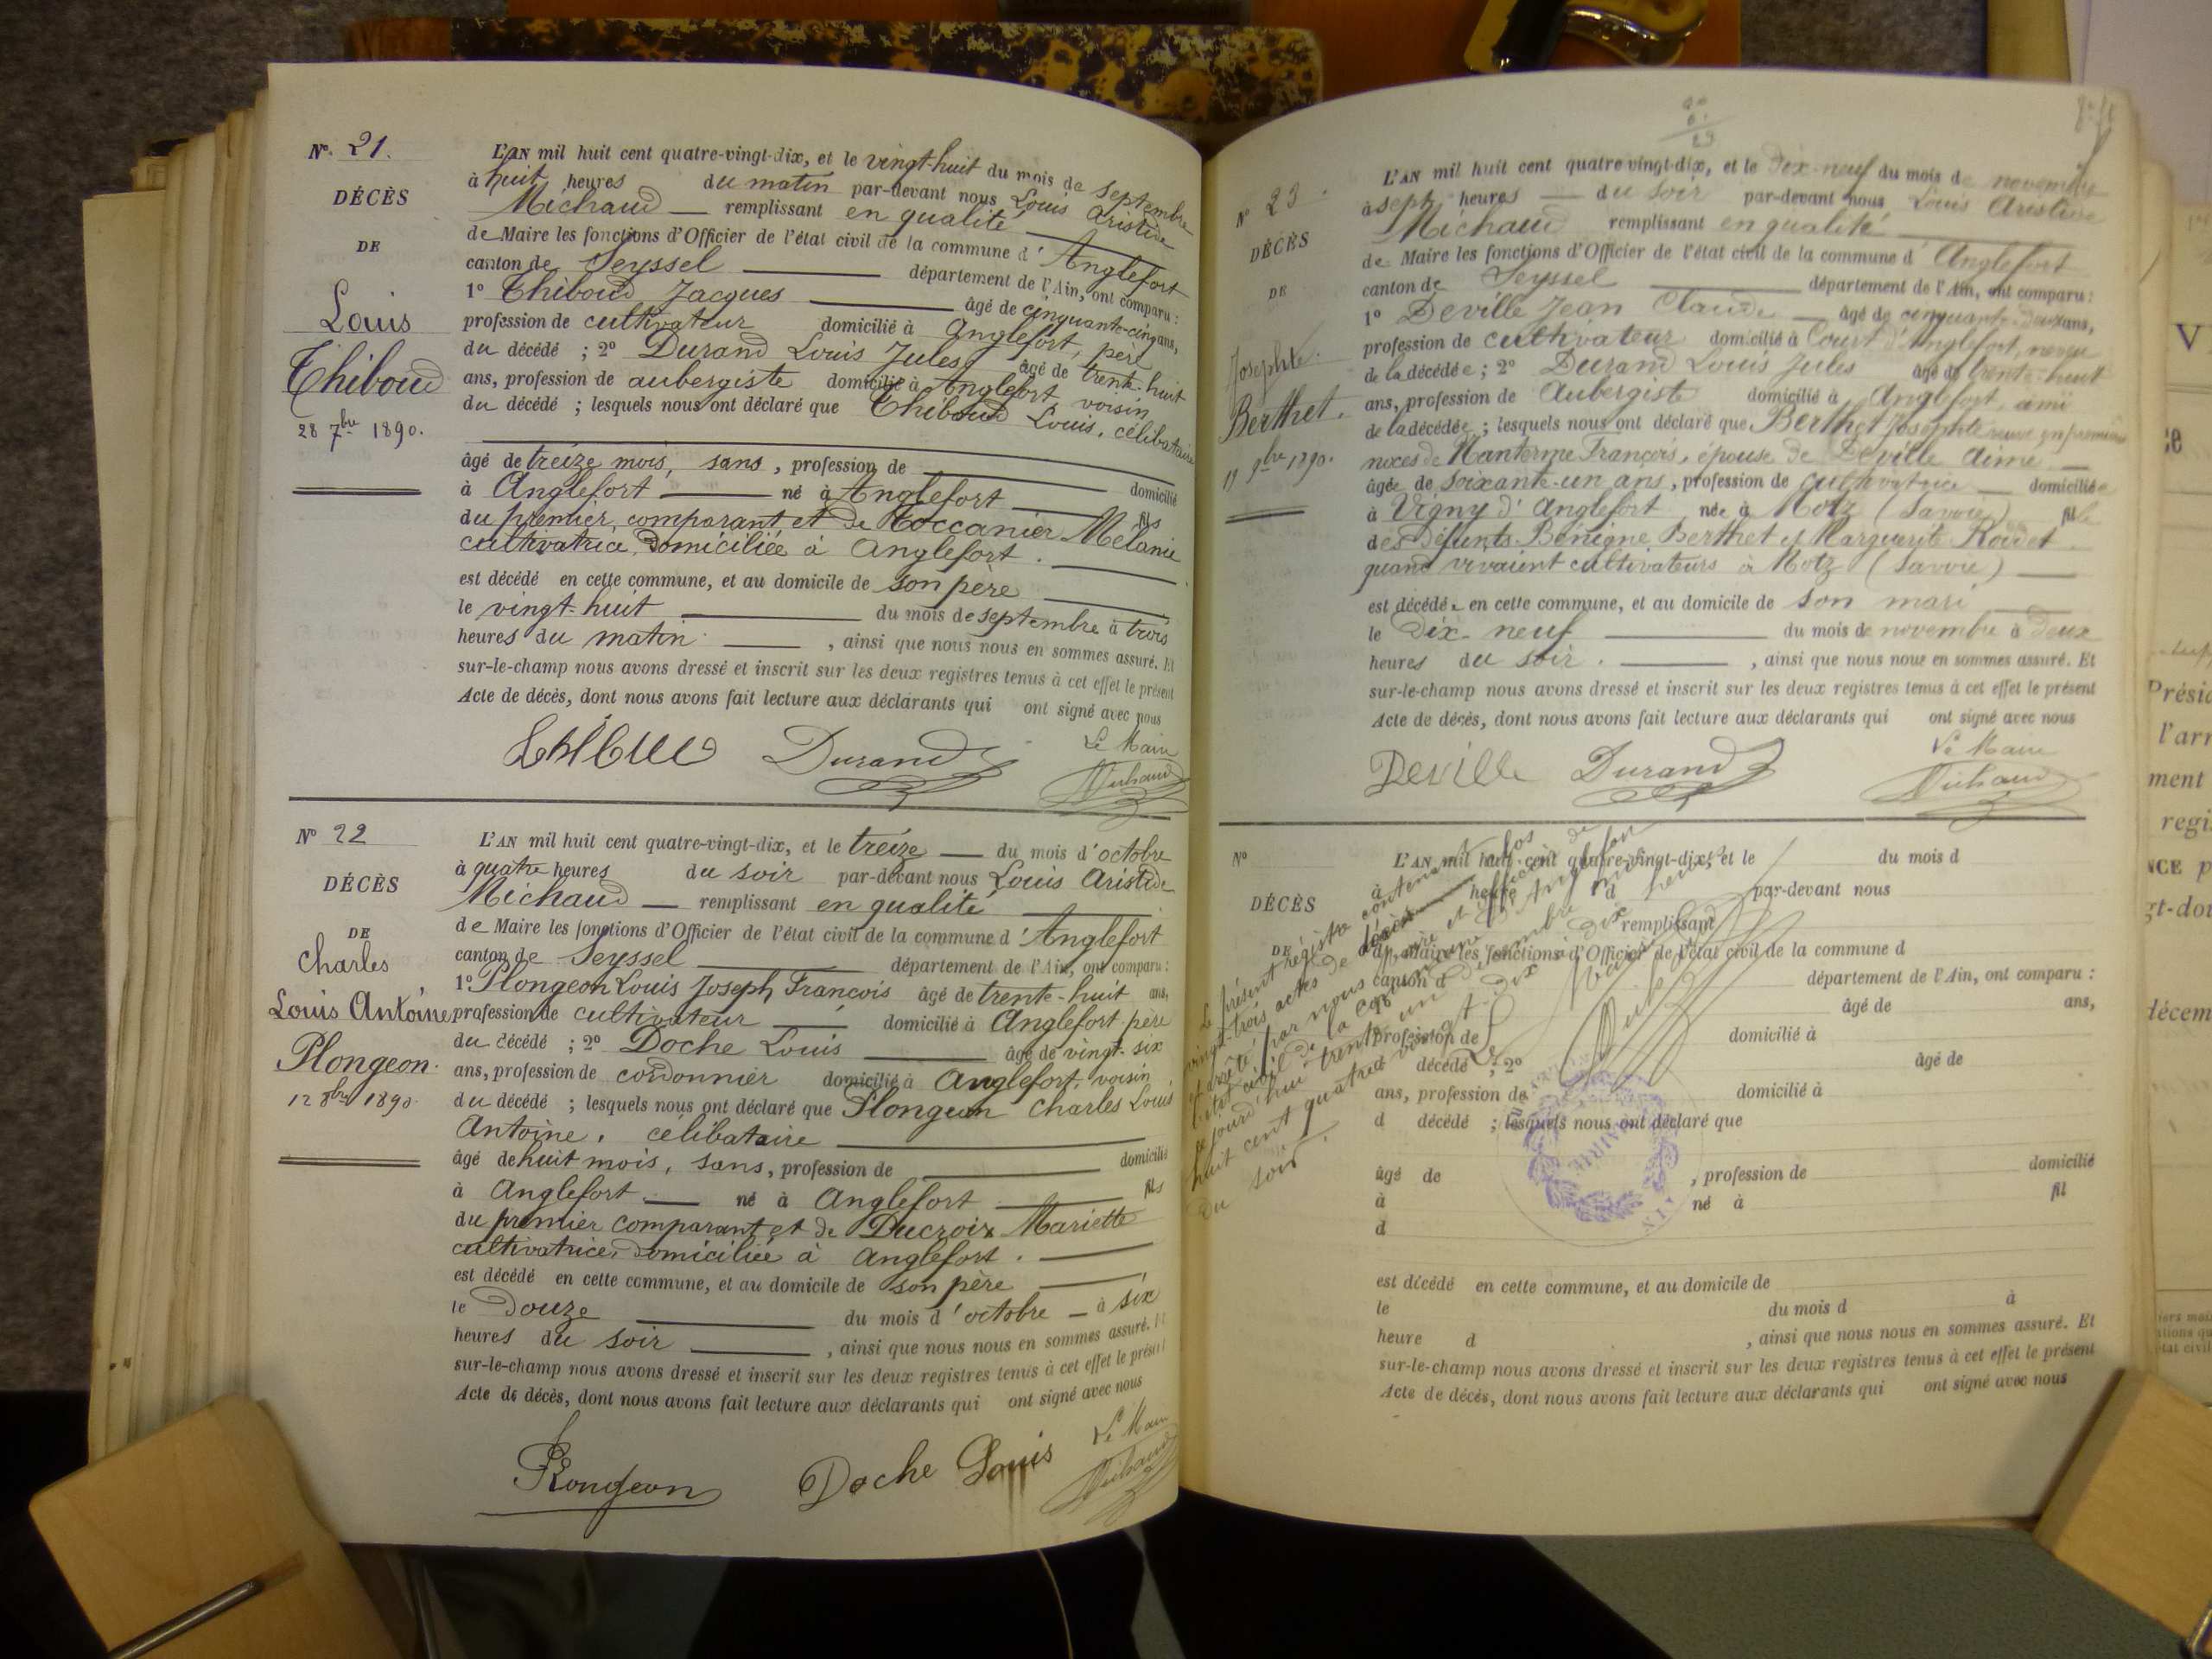 N° 21.
DÉCÈS
DE
Louis
Thiboud
28 7bre 1890.
L'AN mil huit cent quatre-vingt-dix, et le vingt-huit du mois de septembre
à huit heures du matin par-devant nous Louis Aristide
Michaud remplissant en qualité
de Maire les fonctions d'Officier de l'état civil de la commune d'Anglefort
canton de Seyssel département de l'Ain, ont comparu :
1° Thiboud Jacques âgé de cinquante-cinq ans,
profession de cultivateur domicilié à Anglefort, père
du décédé ; 2° Durand Louis Jules âgé de trente-huit
ans, profession de aubergiste domicilié à Anglefort, voisin
du décédé ; lesquels nous ont déclaré que Thiboud Louis, célibataire
âgé de treize mois, sans, profession de domicilié
à Anglefort né à Anglefort fils
du premier comparant et de Moccanier Mélanie
cultivatrice, domiciliée à Anglefort.
est décédé en cette commune, et au domicile de son père
le vingt-huit du mois de septembre à trois
heures du matin , ainsi que nous nous en sommes assuré. Et
sur-le-champ nous avons dressé et inscrit sur les deux registres tenus à cet effet le présent
Acte de décès, dont nous avons fait lecture aux déclarants qui ont signé avec nous
Durand Le Maire
Michaud
N° 22
DÉCÈS
DE
Charles
Louis Antoine
Plongeon.
12 8bre 1890.
L'AN mil huit cent quatre-vingt-dix, et le treize du mois d'octobre
à quatre heures du soir par-devant nous Louis Aristide
Michaud remplissant en qualité
de Maire les fonctions d'Officier de l'état civil de la commune d'Anglefort
canton de Seyssel département de l'Ain, ont comparu :
1° Plongeon Louis Joseph François âgé de trente-huit ans,
profession de cultivateur domicilié à Anglefort père
du décédé ; 2° Doche Louis âgé de vingt-six
ans, profession de cordonnier domicilié à Anglefort, voisin
du décédé ; lesquels nous ont déclaré que Plongeon Charles Louis
Antoine, célibataire
âgé de huit mois, sans, profession de domicilié
à Anglefort né à Anglefort fils
du premier comparant et de Ducroix Mariette
cultivatrice, domiciliée à Anglefort.
est décédé en cette commune, et au domicile de son père
le douze du mois d'octobre à six
heures du soir , ainsi que nous nous en sommes assuré. Et
sur-le-champ nous avons dressé et inscrit sur les deux registres tenus à cet effet le présent
Acte de décès, dont nous avons fait lecture aux déclarants qui ont signé avec nous
Plongeon Doche Louis Le Maire
Michaud
N° 23
DÉCÈS
DE
Josephte
Berthet.
19 9bre 1890.
L'AN mil huit cent quatre-vingt-dix, et le dix-neuf du mois de novembre
à sept heures du soir par-devant nous Louis Aristide
Michaud remplissant en qualité
de Maire les fonctions d'Officier de l'état civil de la commune d'Anglefort
canton de Seyssel département de l'Ain, ont comparu :
1° Deville Jean Claude âgé de cinquante-deux ans,
profession de cultivateur domicilié à Court d'Anglefort, neveu
de la décédée ; 2° Durand Louis Jules âgé de trente-huit
ans, profession de Aubergiste domicilié à Anglefort, ami
de la décédée ; lesquels nous ont déclaré que Berthet Josephte veuve en premières
noces de Nanterme François, épouse de Deville Aimé
âgée de soixante-un ans, profession de cultivatrice domiciliée
à Vigny d'Anglefort née à Motz (Savoie) fille
des défunts Bénigne Berthet et Marguerite Roudet
quand vivaient cultivateurs à Motz (Savoie)
est décédée en cette commune, et au domicile de son mari
le dix-neuf du mois de novembre à deux
heures du soir. , ainsi que nous nous en sommes assuré. Et
sur-le-champ nous avons dressé et inscrit sur les deux registres tenus à cet effet le présent
Acte de décès, dont nous avons fait lecture aux déclarants qui ont signé avec nous
Deville Durand Le Maire
Michaud
N°
DÉCÈS
DE
L'AN mil huit cent quatre-vingt-dix, et le du mois d
à heure d par-devant nous
remplissant
d les fonctions d'Officier de l'état civil de la commune d
canton d département de l'Ain, ont comparu :
âgé de ans,
profession de domicilié à
décédé ; 2° âgé de
ans, profession de domicilié à
d décédé ; lesquels nous ont déclaré que
âgé de , profession de domicilié
à né à fil
d
est décédé en cette commune, et au domicile de
le du mois d à
heure d , ainsi que nous nous en sommes assuré. Et
sur-le-champ nous avons dressé et inscrit sur les deux registres tenus à cet effet le présent
Acte de décès, dont nous avons fait lecture aux déclarants qui ont signé avec nous
Le présent registre contenant
vingt-trois actes de décès
et arrêté par nous maire et officier de
l'état civil de la commune d'Anglefort
ce jourd'hui trente un décembre mil
huit cent quatre vingt dix à dix heures
du soir.
MAIRIE
AIN